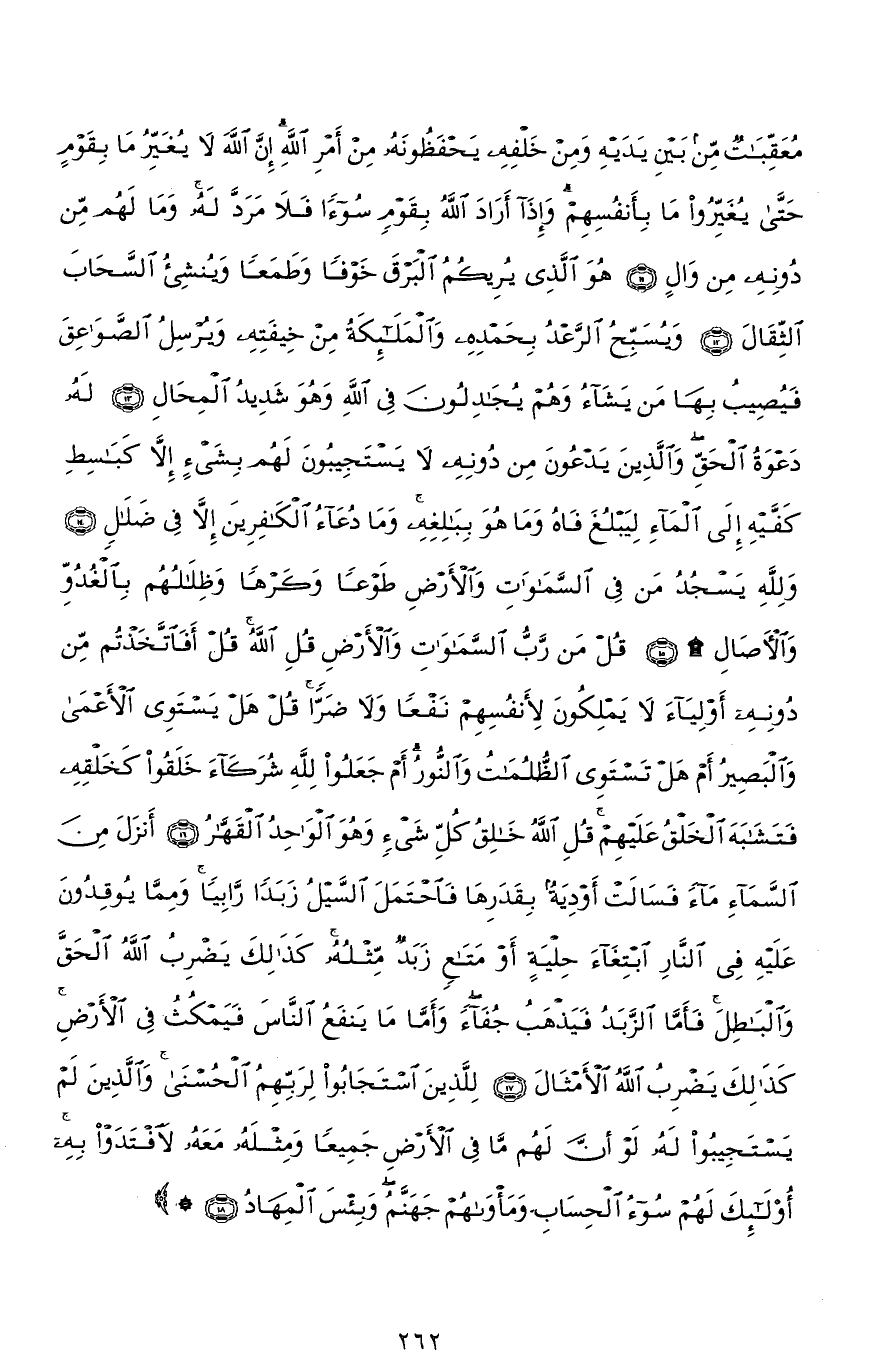 مُعَقِّبَٰتٌ مِّنۢ بَيْنِ يَدَيْهِ وَمِنْ خَلْفِهِۦ يَحْفَظُونَهُۥ مِنْ أَمْرِ ٱللَّهِۗ إِنَّ ٱللَّهَ لَا يُغَيِّرُ مَا بِقَوْمٍ
حَتَّىٰ يُغَيِّرُوا۟ مَا بِأَنفُسِهِمْۗ وَإِذَآ أَرَادَ ٱللَّهُ بِقَوْمٍ سُوٓءًا فَلَا مَرَدَّ لَهُۥۚ وَمَا لَهُم مِّن
دُونِهِۦ مِن وَالٍ ۝١١ هُوَ ٱلَّذِى يُرِيكُمُ ٱلْبَرْقَ خَوْفًا وَطَمَعًا وَيُنشِئُ ٱلسَّحَابَ
ٱلثِّقَالَ ۝١٢ وَيُسَبِّحُ ٱلرَّعْدُ بِحَمْدِهِۦ وَٱلْمَلَٰٓئِكَةُ مِنْ خِيفَتِهِۦ وَيُرْسِلُ ٱلصَّوَٰعِقَ
فَيُصِيبُ بِهَا مَن يَشَآءُ وَهُمْ يُجَٰدِلُونَ فِى ٱللَّهِ وَهُوَ شَدِيدُ ٱلْمِحَالِ ۝١٣ لَهُۥ
دَعْوَةُ ٱلْحَقِّۖ وَٱلَّذِينَ يَدْعُونَ مِن دُونِهِۦ لَا يَسْتَجِيبُونَ لَهُم بِشَىْءٍ إِلَّا كَبَٰسِطِ
كَفَّيْهِ إِلَى ٱلْمَآءِ لِيَبْلُغَ فَاهُ وَمَا هُوَ بِبَٰلِغِهِۦۚ وَمَا دُعَآءُ ٱلْكَٰفِرِينَ إِلَّا فِى ضَلَٰلٍ ۝١٤
وَلِلَّهِ يَسْجُدُ مَن فِى ٱلسَّمَٰوَٰتِ وَٱلْأَرْضِ طَوْعًا وَكَرْهًا وَظِلَٰلُهُم بِٱلْغُدُوِّ
وَٱلْءَاصَالِ ۩ ۝١٥ قُلْ مَن رَّبُّ ٱلسَّمَٰوَٰتِ وَٱلْأَرْضِ قُلِ ٱللَّهُۚ قُلْ أَفَٱتَّخَذْتُم مِّن
دُونِهِۦٓ أَوْلِيَآءَ لَا يَمْلِكُونَ لِأَنفُسِهِمْ نَفْعًا وَلَا ضَرًّاۚ قُلْ هَلْ يَسْتَوِى ٱلْأَعْمَىٰ
وَٱلْبَصِيرُ أَمْ هَلْ تَسْتَوِى ٱلظُّلُمَٰتُ وَٱلنُّورُۗ أَمْ جَعَلُوا۟ لِلَّهِ شُرَكَآءَ خَلَقُوا۟ كَخَلْقِهِۦ
فَتَشَٰبَهَ ٱلْخَلْقُ عَلَيْهِمْۚ قُلِ ٱللَّهُ خَٰلِقُ كُلِّ شَىْءٍ وَهُوَ ٱلْوَٰحِدُ ٱلْقَهَّٰرُ ۝١٦ أَنزَلَ مِنَ
ٱلسَّمَآءِ مَآءً فَسَالَتْ أَوْدِيَةٌۢ بِقَدَرِهَا فَٱحْتَمَلَ ٱلسَّيْلُ زَبَدًا رَّابِيًاۚ وَمِمَّا يُوقِدُونَ
عَلَيْهِ فِى ٱلنَّارِ ٱبْتِغَآءَ حِلْيَةٍ أَوْ مَتَٰعٍ زَبَدٌ مِّثْلُهُۥۚ كَذَٰلِكَ يَضْرِبُ ٱللَّهُ ٱلْحَقَّ
وَٱلْبَٰطِلَۚ فَأَمَّا ٱلزَّبَدُ فَيَذْهَبُ جُفَآءًۖ وَأَمَّا مَا يَنفَعُ ٱلنَّاسَ فَيَمْكُثُ فِى ٱلْأَرْضِۚ
كَذَٰلِكَ يَضْرِبُ ٱللَّهُ ٱلْأَمْثَالَ ۝١٧ لِلَّذِينَ ٱسْتَجَابُوا۟ لِرَبِّهِمُ ٱلْحُسْنَىٰۚ وَٱلَّذِينَ لَمْ
يَسْتَجِيبُوا۟ لَهُۥ لَوْ أَنَّ لَهُم مَّا فِى ٱلْأَرْضِ جَمِيعًا وَمِثْلَهُۥ مَعَهُۥ لَٱفْتَدَوْا۟ بِهِۦٓۚ
أُو۟لَٰٓئِكَ لَهُمْ سُوٓءُ ٱلْحِسَابِ وَمَأْوَىٰهُمْ جَهَنَّمُۖ وَبِئْسَ ٱلْمِهَادُ ۝١٨ * ﴾
٢٦٢